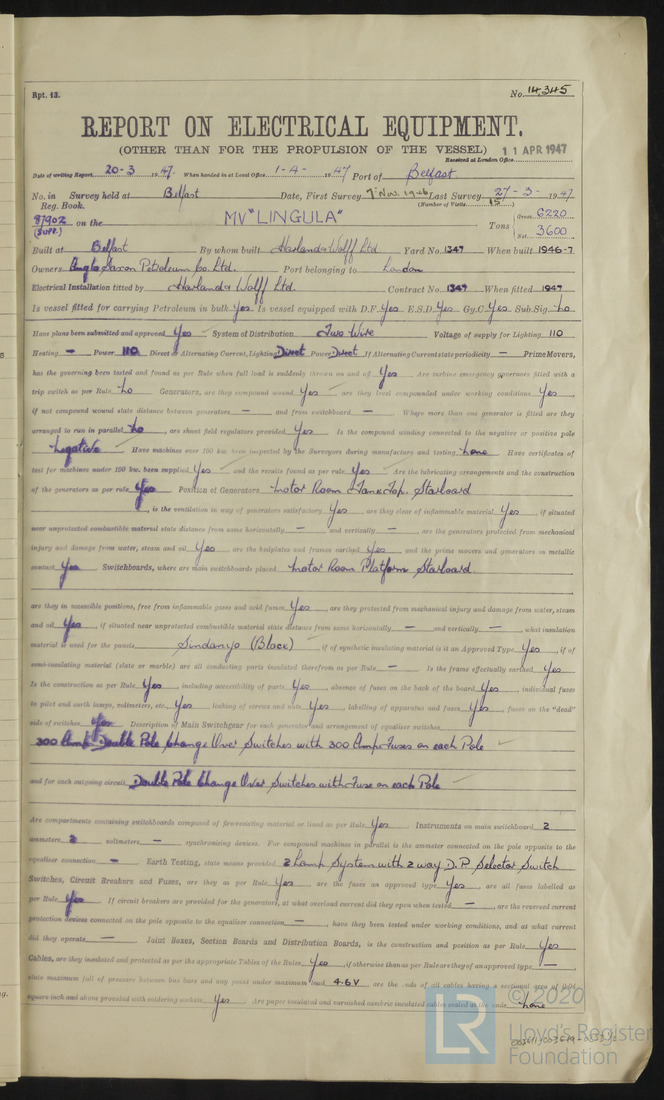 Rpt. 13. No. 14345
REPORT ON ELECTRICAL EQUIPMENT.
(OTHER THAN FOR THE PROPULSION OF THE VESSEL) 11 APR 1947
Received at London Office
Date of writing Report 20-3 1947. When handed in at Local Office 1-4-1947 Port of Belfast
No. in Survey held at Belfast Date, First Survey 7 Nov. 1946 Last Survey 27-3-1947
Reg. Book. (Number of Visits 15)
87902 on the MV "LINGULA" Tons Gross 6220
(SUPP.) Net 3600
Built at Belfast By whom built Harland & Wolff Ltd Yard No. 1347 When built 1946-7
Owners Anglo Saxon Petroleum Co. Ltd. Port belonging to London
Electrical Installation fitted by Harland & Wolff Ltd. Contract No. 1347 When fitted 1947
Is vessel fitted for carrying Petroleum in bulk Yes Is vessel equipped with D.F. Yes E.S.D. Yes Gy.C. Yes Sub.Sig. No
Have plans been submitted and approved Yes System of Distribution Two Wire Voltage of supply for Lighting 110
Heating - Power 110 Direct or Alternating Current, Lighting Direct Power Direct If Alternating Current state periodicity - Prime Movers,
has the governing been tested and found as per Rule when full load is suddenly thrown on and off Yes Are turbine emergency governors fitted with a
trip switch as per Rule No Generators, are they compound wound Yes are they level compounded under working conditions Yes,
if not compound wound state distance between generators - and from switchboard - Where more than one generator is fitted are they
arranged to run in parallel No, are shunt field regulators provided Yes Is the compound winding connected to the negative or positive pole
Negative Have machines over 100 kw. been inspected by the Surveyors during manufacture and testing None Have certificates of
test for machines under 100 kw. been supplied Yes and the results found as per rule Yes Are the lubricating arrangements and the construction
of the generators as per rule Yes Position of Generators Motor Room Tank Top. Starboard
, is the ventilation in way of generators satisfactory Yes are they clear of inflammable material Yes, if situated
near unprotected combustible material state distance from same horizontally - and vertically -, are the generators protected from mechanical
injury and damage from water, steam and oil Yes, are the bedplates and frames earthed Yes and the prime movers and generators in metallic
contact Yes Switchboards, where are main switchboards placed Motor Room Platform Starboard
are they in accessible positions, free from inflammable gases and acid fumes Yes, are they protected from mechanical injury and damage from water, steam
and oil Yes, if situated near unprotected combustible material state distance from same horizontally - and vertically -, what insulation
material is used for the panels Sindanyo (Black), if of synthetic insulating material is it an Approved Type Yes, if of
semi-insulating material (slate or marble) are all conducting parts insulated therefrom as per Rule - Is the frame effectually earthed Yes
Is the construction as per Rule Yes, including accessibility of parts Yes, absence of fuses on the back of the board Yes, individual fuses
to pilot and earth lamps, voltmeters, etc. Yes locking of screws and nuts Yes, labelling of apparatus and fuses Yes, fuses on the "dead"
side of switches Yes Description of Main Switchgear for each generator and arrangement of equaliser switches
300 Amp. Double Pole Change Over Switches with 300 Amp Fuses on each Pole
and for each outgoing circuit Double Pole Change Over Switches with Fuse on each Pole
Are compartments containing switchboards composed of fire-resisting material or lined as per Rule Yes Instruments on main switchboard 2
ammeters 2 voltmeters - synchronising devices. For compound machines in parallel is the ammeter connected on the pole opposite to the
equaliser connection - Earth Testing, state means provided 2 Lamp System with 2 way D.P Selector Switch
Switches, Circuit Breakers and Fuses, are they as per Rule Yes, are the fuses an approved type Yes, are all fuses labelled as
per Rule Yes If circuit breakers are provided for the generators, at what overload current did they open when tested -, are the reversed current
protection devices connected on the pole opposite to the equaliser connection -, have they been tested under working conditions, and at what current
did they operate - Joint Boxes, Section Boards and Distribution Boards, is the construction and position as per Rule Yes
Cables, are they insulated and protected as per the appropriate Tables of the Rules Yes, if otherwise than as per Rule are they of an approved type -,
state maximum fall of pressure between bus bars and any point under maximum load 4.6V, are the ends of all cables having a sectional area of 0.04
square inch and above provided with soldering sockets Yes Are paper insulated and varnished cambric insulated cables sealed at the ends None
© 2020
LR
Lloyd's Register
Foundation